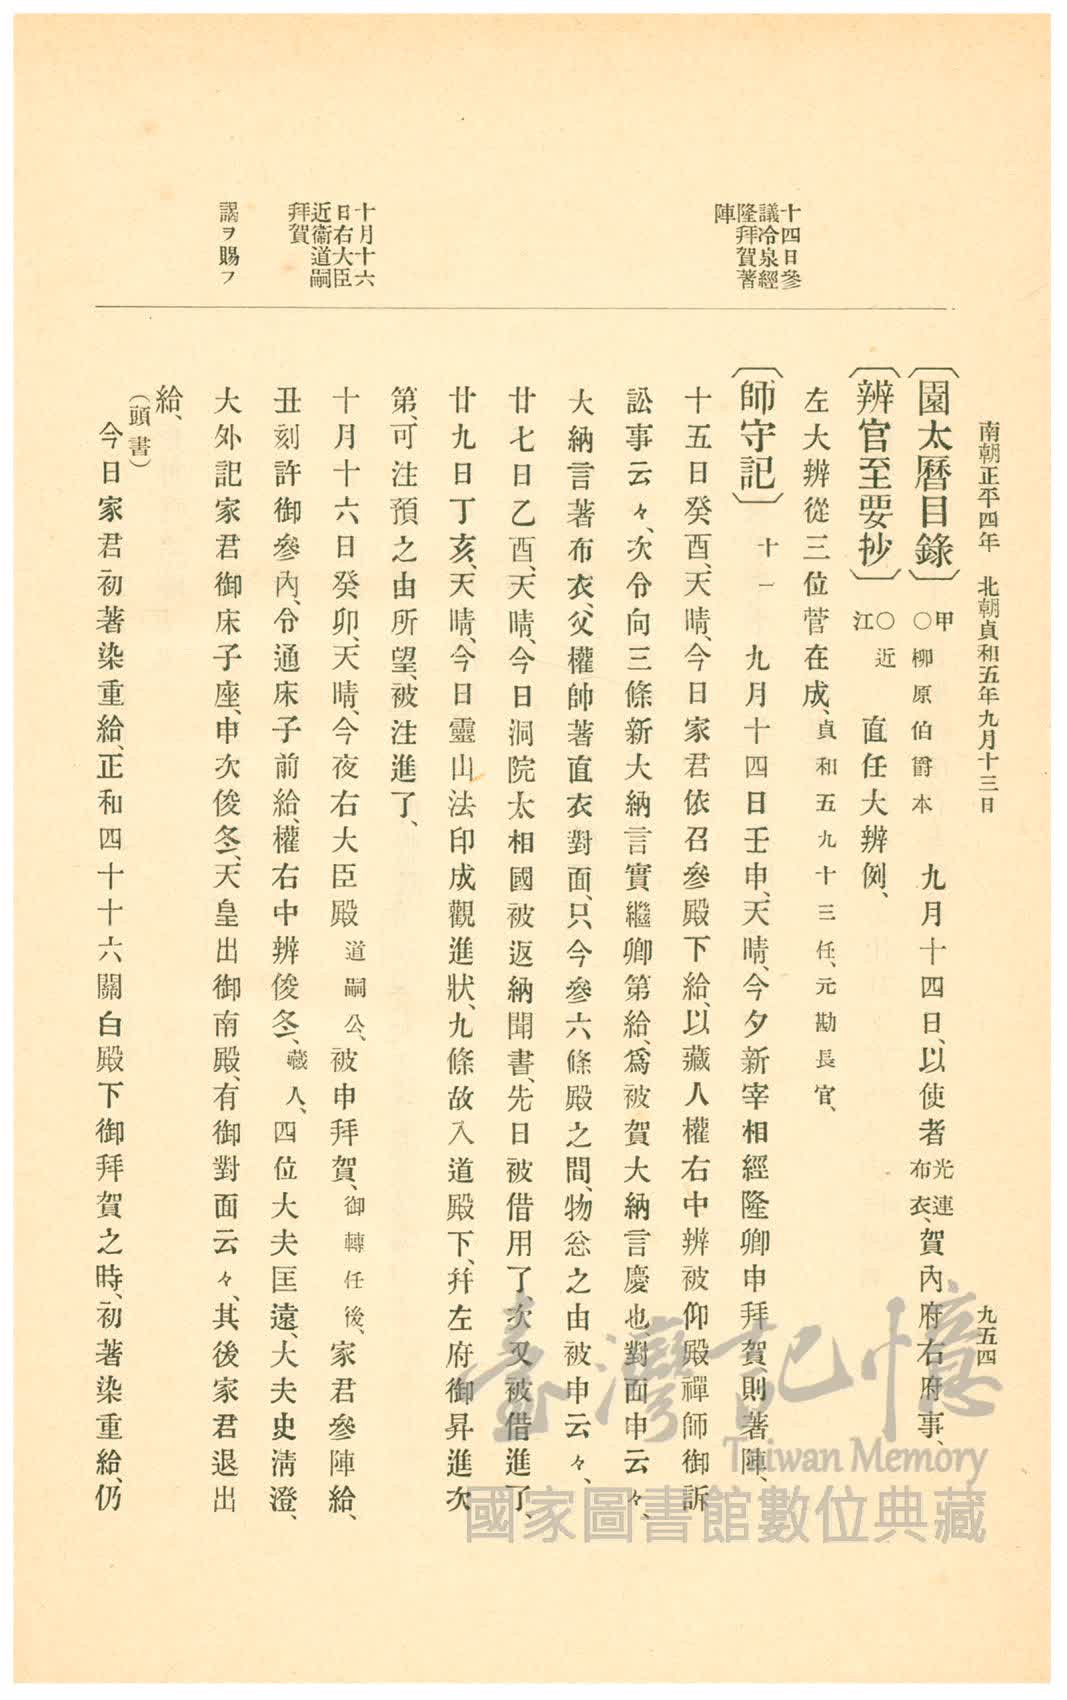 南朝正平四年　北朝貞和五年九月十三日
九五四
十四日參
議冷泉經
隆拜賀著
陣
十月十六
日右大臣
近衞道嗣
拜賀
謁ヲ賜フ
〔園太曆目錄〕 甲〇柳原伯爵本 九月十四日、以使者光連布衣、賀內府右府事、
〔辨官至要抄〕 〇近江 直任大辨例、
左大辨從三位菅在成、貞和五九十三任、元勘長官、
〔師守記〕 十一 九月十四日壬申、天晴、今夕新宰相經隆卿申拜賀則著陣、
十五日癸酉、天晴、今日家君依召參殿下給、以藏人權右中辨被仰殿禪師御訴
訟事云々、次令向三條新大納言實繼卿第給、爲被賀大納言慶也、對面申云々、
大納言著布衣、父權帥著直衣對面、只今參六條殿之間、物忩之由被申云々、
廿七日乙酉、天晴、今日洞院太相國被返納聞書、先日被借用了、次又被借進了、
廿九日丁亥、天晴、今日靈山法印成觀進狀、九條故入道殿下、幷左府御昇進次
第、可注預之由所望、被注進了、
十月十六日癸卯、天晴、今夜右大臣殿道嗣公、被申拜賀、御轉任後、家君參陣給、
丑刻許御參內、令通床子前給、權右中辨俊冬、藏人、四位大夫匡遠、大夫史淸澄、
大外記家君御床子座、申次俊冬、天皇出御南殿、有御對面云々、其後家君退出
給、
（頭書）
今日家君初著染重給、正和四十十六關白殿下御拜賀之時、初著染重給、仍
臺灣記憶
Taiwan Memory
國家圖書館數位典藏